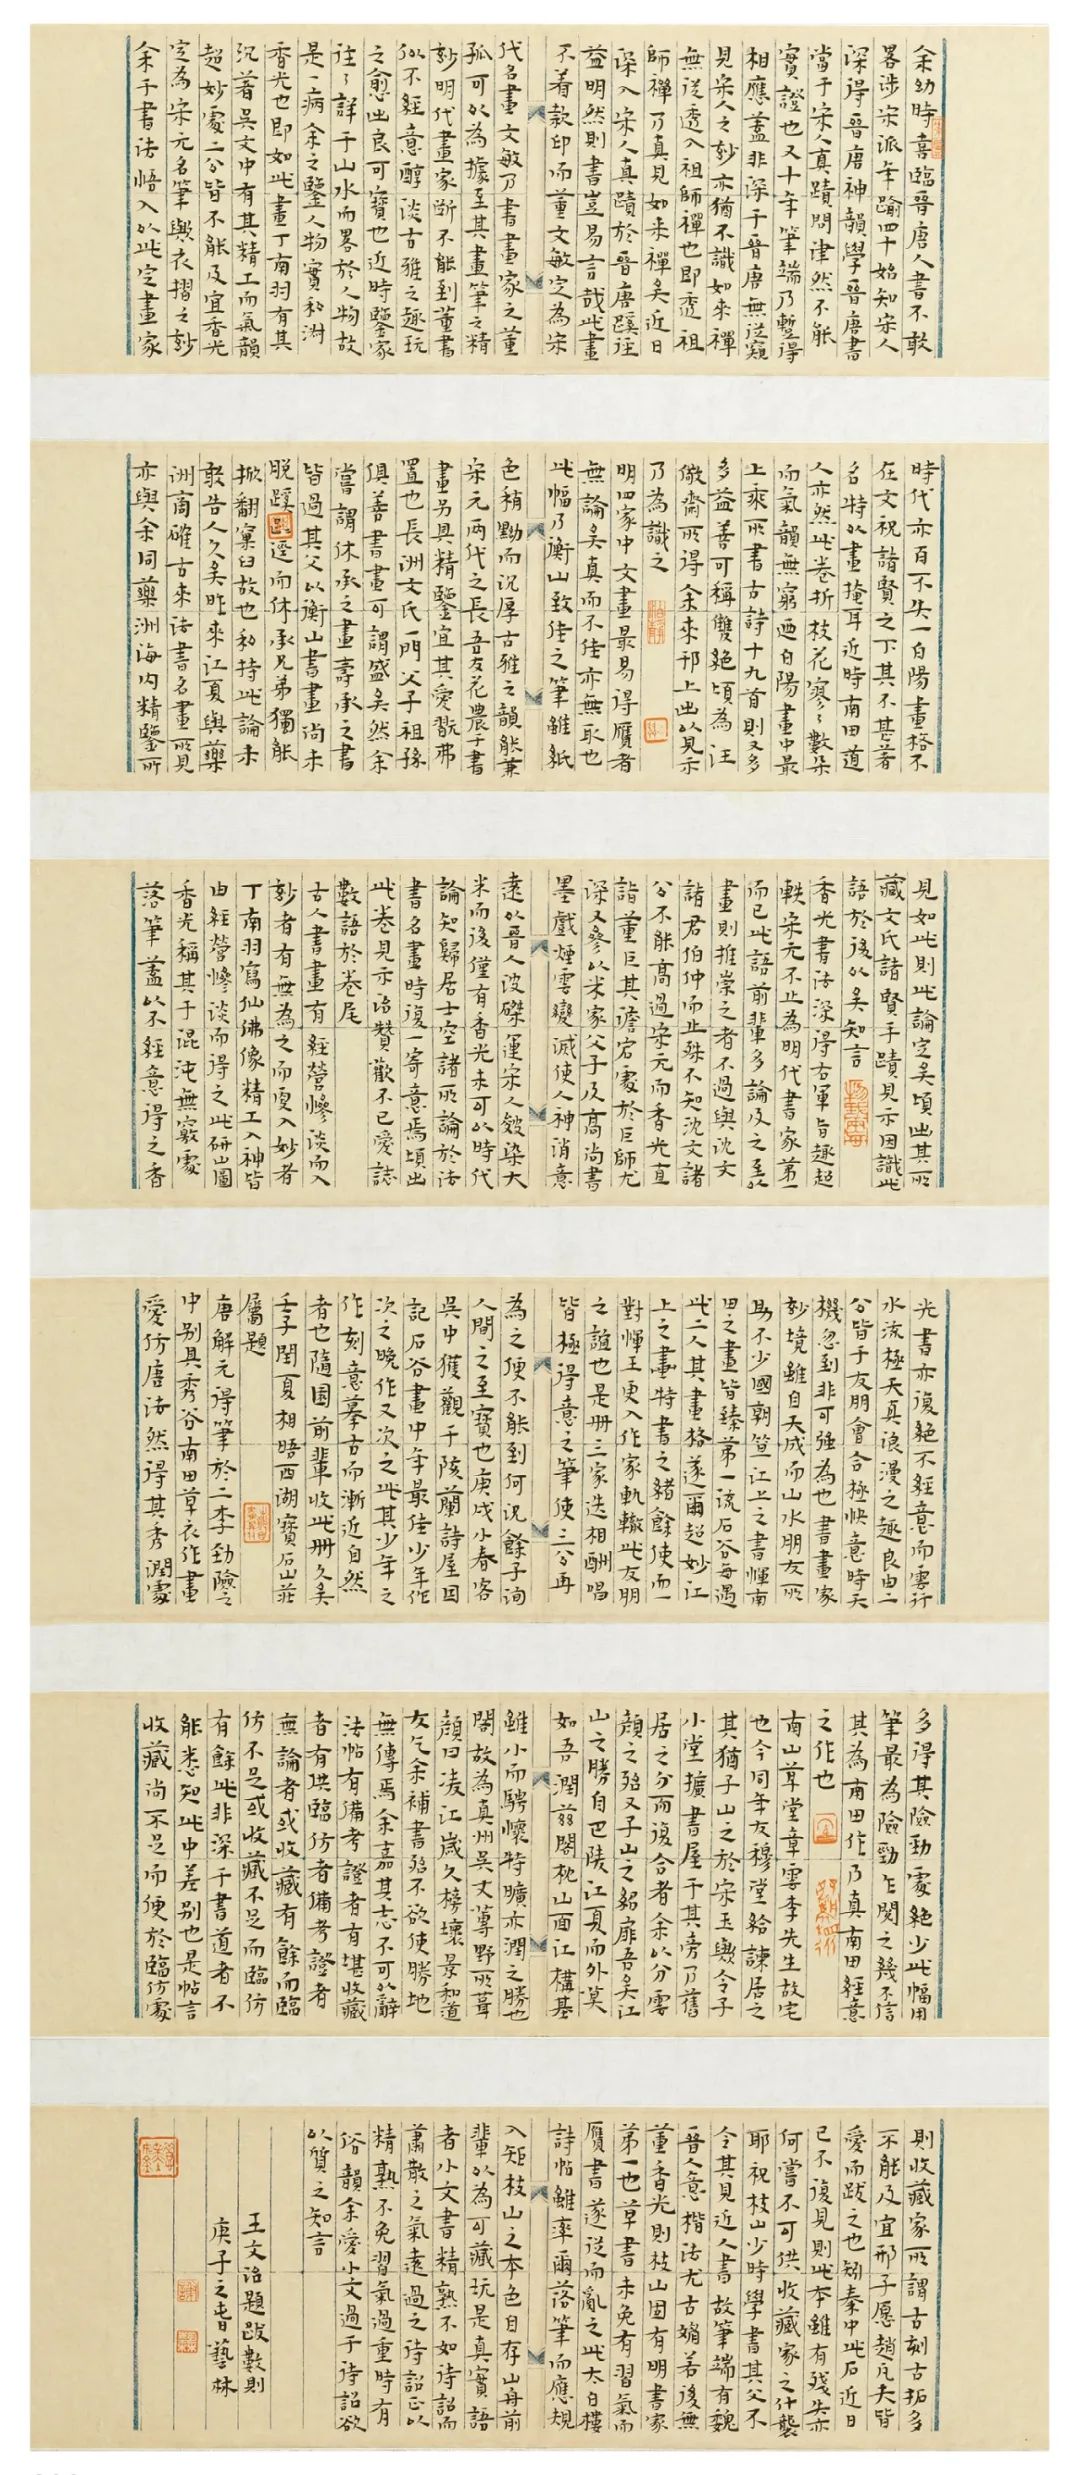 余幼時喜臨晉唐人書不敢
畧涉宋派年踰四十始知宋人
深得晉唐神韻學晉唐書
當于宋人真蹟問津然不能
實證也又十年筆端乃暫得
相應蓋非深于晉唐無從窺
見宋人之妙亦猶不識如來禪
無從透入祖師禪也即透祖
師禪乃真見如来禪矣近日
深入宋人真蹟於晉唐蹊徑
益明然則書豈易言哉此畫
不着款印而董文敏定為宋
代名畫文敏乃書畫家之董
孤可以為據至其畫筆之精
妙明代畫家斷不能到董書
似不經意醇淡古雅之趣玩
之愈出良可寶也近時鑒家
往々詳于山水而畧於人物故
是一病余之鑒人物實和澍
香光也即如此畫丁南羽有其
沉著吳文中有其精工而氣韻
超妙處二公皆不能及宜香光
定為宋元名筆與衣摺之妙
余于書法悟入以此定畫家
時代亦百不失一白陽畫格不
在文祝諸賢之下其不甚著
名特以畫掩耳近時南田道
人亦然此卷折枝花寥々數朵
而氣韻無窮迺白陽畫中最
上乘所書古詩十九首則又多
多益善可稱雙絶頃為汪
儆齋所得余来邗上出以見示
乃為識之
明四家中文畫最易得贋者
無論矣真而不佳亦無取也
此幅乃衡山致佳之筆雖紙
色稍黝而沉厚古雅之韻能兼
宋元兩代之長吾友花農于書
畫另具精鑒宜其愛翫弗
置也長洲文氏一門父子祖孫
俱善書畫可謂盛矣然余
嘗謂休承之畫壽承之書
皆過其父以衡山書畫尚未
脫蹊逕而休承兄弟獨能
掀翻窠臼故也私持此論未
敢告人久矣昨来江夏與藥
洲商確古来法書名畫所見
亦與余同藥洲海内精鑒所
見如此則此論定矣頃出其所
藏文氏諸賢手蹟見示因識此
語於後以矣知言
香光書法深得右軍旨趣超
軼宋元不止為明代書家第一
而已此語前輩多論及之至於
畫則推崇之者不過與沈文
諸君伯仲而止殊不知沈文諸
公不能髙過宋元而香光直
詣董巨其澹宕處於巨師尤
深又參以米家父子及髙尚書
墨戲煙雲變滅使人神消意
遠以晉人波磔運宋人皴染大
米而後僅有香光未可以時代
論知歸居士空諸所論於法
書名畫時復一寄意焉頃出
此卷見示治贊歎不已爰誌
數語於卷尾
古人書畫有經營慘淡而入
妙者有無為之而更入妙者
丁南羽寫仙佛像精工入神皆
由經營慘淡而得之此研山圖
香光稱其于混沌無竅處
落筆蓋以不經意得之香
光書亦復絶不經意而雲行
水流極天真浪漫之趣良由二
公皆于友朋會合極快意時天
機忽到非可強為也書畫家
妙境雖自天成而山水朋友所
助不少國朝笪江上之書惲南
田之畫皆臻第一流石谷每遇
此二人其畫格遂爾超妙江
上之畫特書之緒餘使而一
對惲王更入作家軌轍此友朋
之誼也是册三家迭相酬唱
皆極得意之筆使三公再
為之便不能到何況餘子洵
人間之至寶也庚戌小春客
吳中獲觀于陔蘭詩屋因
記石谷畫中年最佳少年作
次之晚作又次之此其少年之
作刻意摹古而漸近自然
者也隨園前輩收此册久矣
壬子閏夏相晤西湖寶石山莊
屬題
唐解元得筆於二李勁險之
中别具秀谷南田草衣作畫
愛仿唐法然得其秀潤處
多得其險勁處絶少此幅用
筆最為險勁乍閱之幾不信
其為南田作乃真南田經意
之作也
南山草堂章雲李先生故宅
也今同年友穆堂給諫居之
其猶子山之於宋玉歟令子
小堂擴書屋于其旁乃舊
居之分而復合者余以分雲
顔之殆又子山之貂扉吾矣江
山之勝自巴陵江夏而外莫
如吾潤兹閣枕山面江構基
雖小而騁懷特曠亦潤之勝也
閣故為真州吳丈蓴野所葺
顔曰凌江歲久榜壞景和道
友乞余補書殆不欲使勝地
無傳焉余嘉其志不可以辭
法帖有備考證者有堪收藏
者有供臨仿者備考證者
無論者或收藏有餘而臨
仿不足或收藏不足而臨仿
有餘此非深于書道者不
能悉知此中差别也是帖言
收藏尚不足而便於臨仿處
則收藏家所謂古刻古拓多
不能及宜邢子愿趙凡夫皆
愛而跋之也矧秦中此石近日
已不復見則此本雖有殘失亦
何嘗不可供收藏家之什襲
耶祝枝山少時學書其父不
令其見近人書故筆端有魏
晉人意楷法尤古媚若後無
董香光則枝山固有明書家
第一也草書未免有習氣而
贋書遂從而亂之此太白樓
詩帖雖率爾落筆而應規
入矩枝山之本色自存山舟前
輩以為可藏玩是真實語
者小文書精熟不如诗詔而
蕭散之氣遠過之诗詔正以
精熟不免習氣過重時有
俗韻余愛小文過于诗詔欲
以質之知言
王文治題跋數則
庚子之春藝林